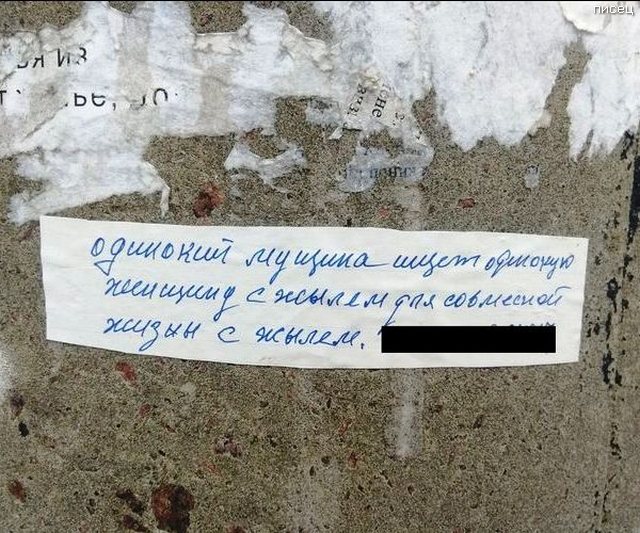 писец
одинокий мущина ищет одинокую
женщину с жылем для совмесной
жизни с жылем.